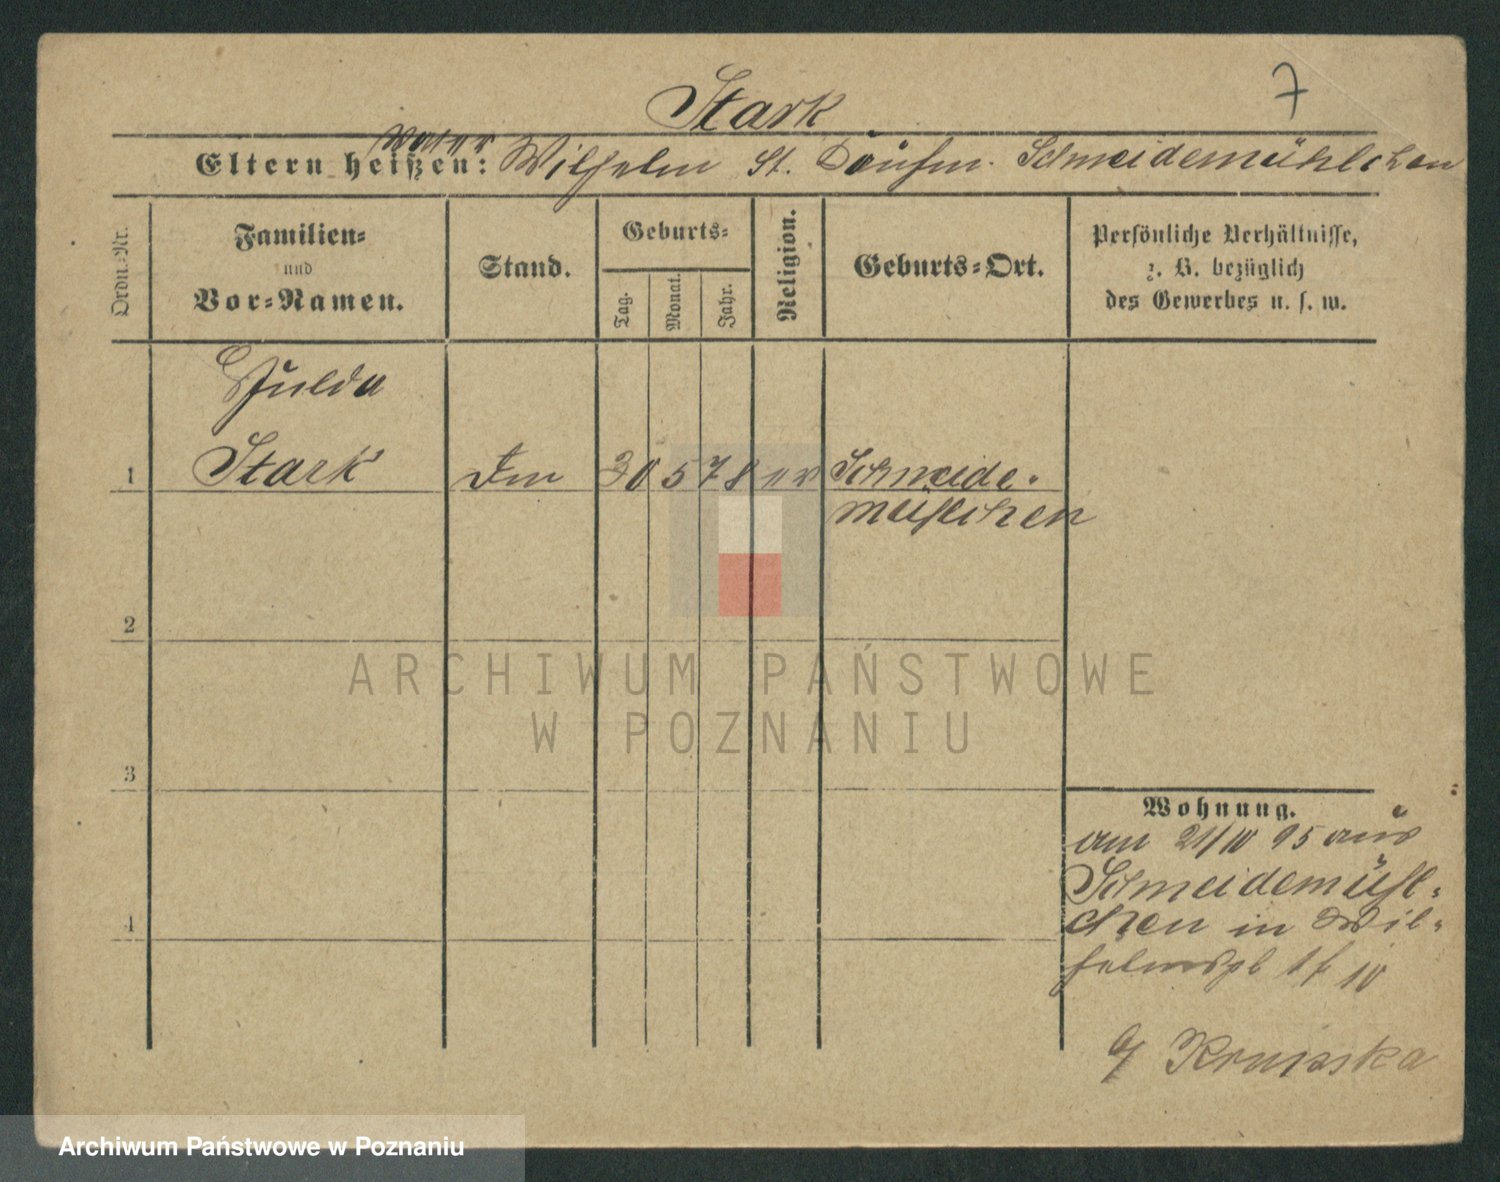 Stark
7
Vater
Eltern heißen: Wilhelm St. Schneidemühlchen
Ordn.-Nr.
Familien-
und
Vor-Namen.
Stand.
Geburts-
Tag.
Monat.
Jahr.
Religion.
Geburts-Ort.
Persönliche Verhältnisse,
z. B. bezüglich
des Gewerbes u. s. w.
Hulda
1 Stark 30 5 78 ev Schneide-
mühlchen
2
3
4
Wohnung.
am 21/10 95 aus
Schneidemühl-
chen in Wil-
helmspl 10
ARCHIWUM PAŃSTWOWE
W POZNANIU
Archiwum Państwowe w Poznaniu